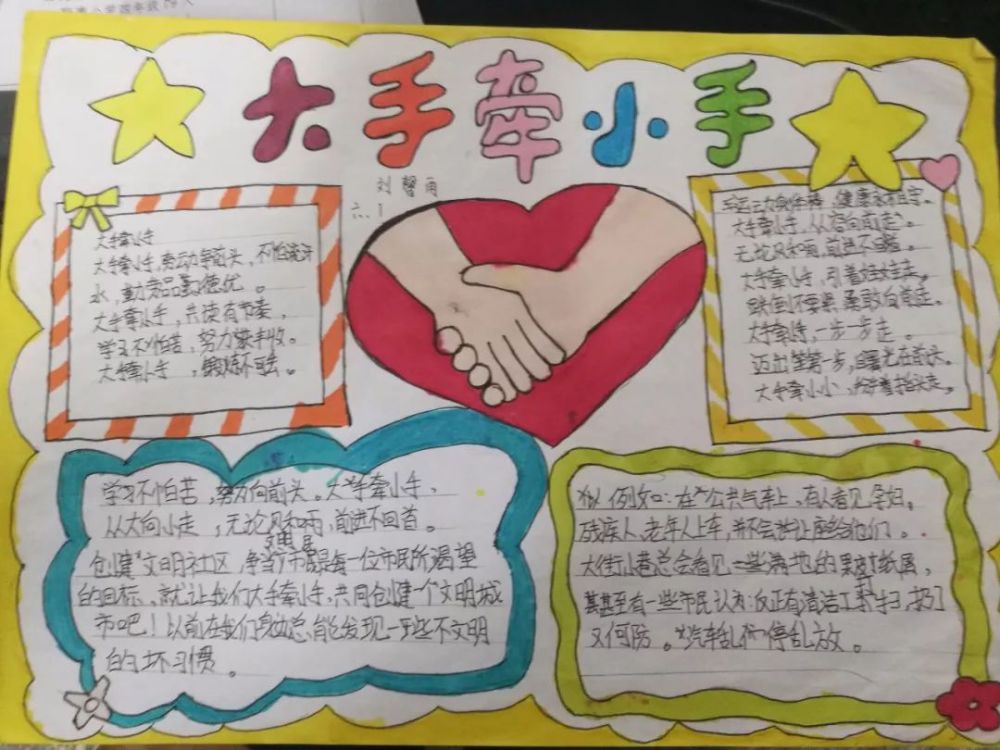 大手牵小手
刘智雨
六.1
大手牵小手
大手牵小手,劳动争前头,不怕流汗
水,勤劳品勤德优。
大手牵小手,共读有节奏,
学习不怕苦,努力获丰收。
大手牵小手,锻炼不可丢。
运动身体棒,健康永相守。
大手牵小手,从容向前走。
无论风和雨,前进不回首。
大手牵小手,引着娃娃走。
跌倒不要紧,勇敢向前走。
大手牵小手,一步一步走。
迈出第一步,曙光在前头。
大手牵小小,
学习不怕苦,努力向前头。大手牵小手,
从大向小走,无论风和雨,前进不回首。
创建“文明社区,争当市民是每一位市民所渴望
的目标,就让我们大手牵小手,共同创建一个文明城
市吧!以前在我们身边总能发现一些不文明
的坏习惯。
例如:在公共气车上,有人看见孕妇。
残疾人、老年人上车,并不会让座给他们。
大街小巷总会看见一些满地的果皮纸屑,
甚至有一些市民认为:反正有清洁工打扫,扔
又何防。汽车乱停乱放。